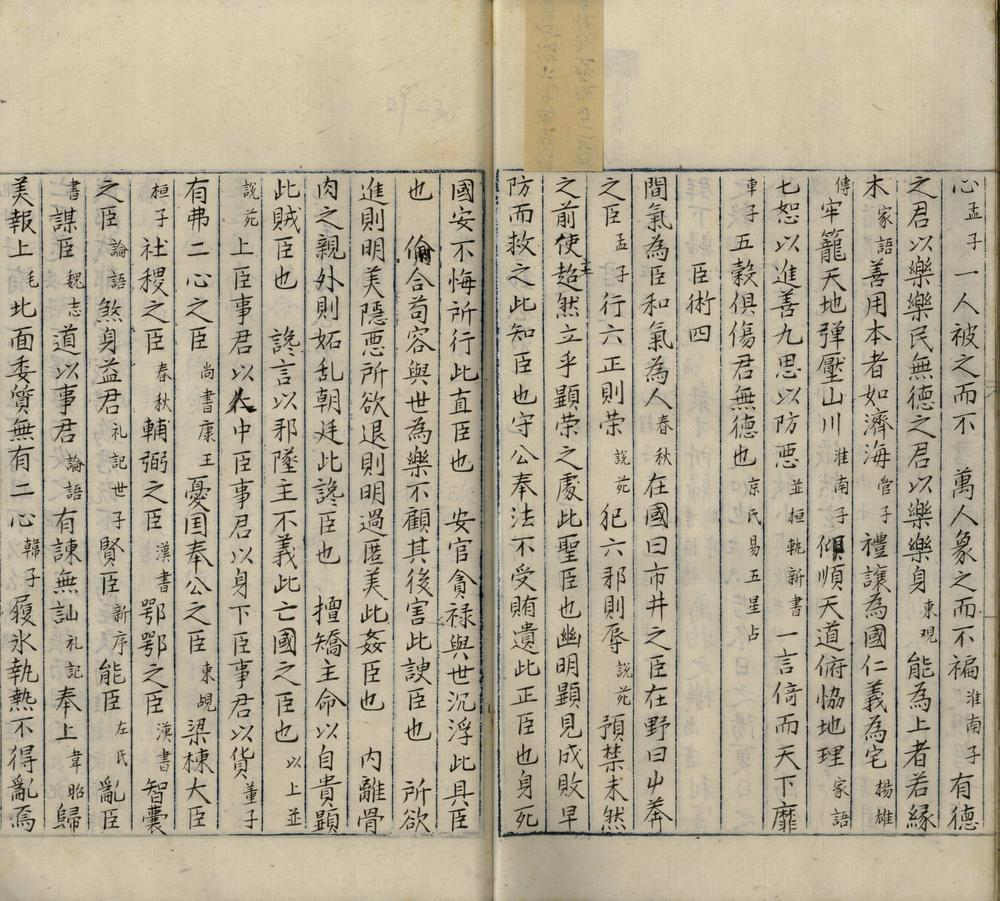 心孟子一人被之而不 萬人象之而不褊淮南子有德
之君以樂樂民無德之君以樂樂身東观能為上者若緣
木家語善用本者如濟海管子禮讓為國仁義為宅揚雄
傳牢籠天地彈壓山川淮南子傾順天道俯恊地理家語
七恕以進善九思以防悪並桓範新書一言倚而天下靡
車子五榖俱傷君無德也京氏易五星占
臣術四
間氣為臣和氣為人春秋在國曰市井之臣在野曰艸莽
之臣孟子行六正則荣說苑犯六邪則辱說苑預禁未然
之前使主超然立乎顯荣之處此聖臣也幽明顯見成敗早
防而救之此知臣也守公奉法不受賄遺此正臣也身死
國安不悔所行此直臣也 安官貪禄與世沉浮此具臣
也 偷合苟容與世為樂不顧其後害此諛臣也 所欲
進則明美隱悪所欲退則明過匿美此姦臣也 内離骨
肉之親外則妬乱朝廷此讒臣也 擅矯主命以自貴顕
此賊臣也 讒言以邪墜主不義此亡國之臣也以上並
說苑上臣事君以人中臣事君以身下臣事君以貨董子
有弗二心之臣尚書康王憂国奉公之臣東觀梁棟大臣
桓子社稷之臣春秋輔弼之臣漢書鄂鄂之臣漢書智囊
之臣論語煞身益君礼記世子賢臣新序能臣左氏亂臣
書謀臣魏志道以事君論語有諫無訕礼記奉上韋昭歸
美報上毛北面委質無有二心韓子履氷執熱不得亂焉
29-230